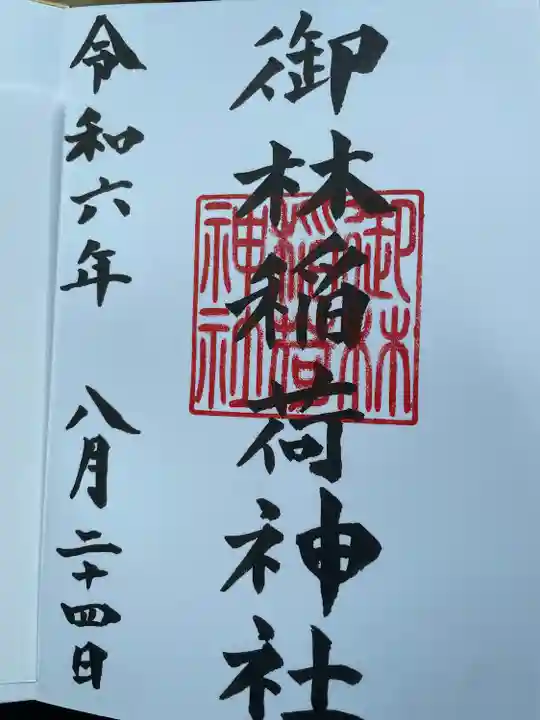 御林稲荷神社
御林
稲荷
神社
令和六年 八月二十四日